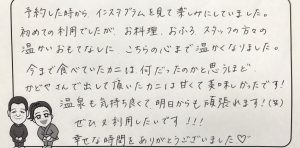 予約した時から、インスタグラムを見て楽しみにしていました。
初めての利用でしたが、お料理、おふろ、スタッフの方々の
温かいおもてなしに、こちらの心まで温かくなりました。
今まで食べていたカニは何だったのかと思うほど
かどやさんで出して頂いたカニは甘くて美味しかったです!
温泉も気持ち良くて明日からも頑張れます!(笑)
ぜひ又利用したいです!!!
幸せな時間をありがとうございました♡